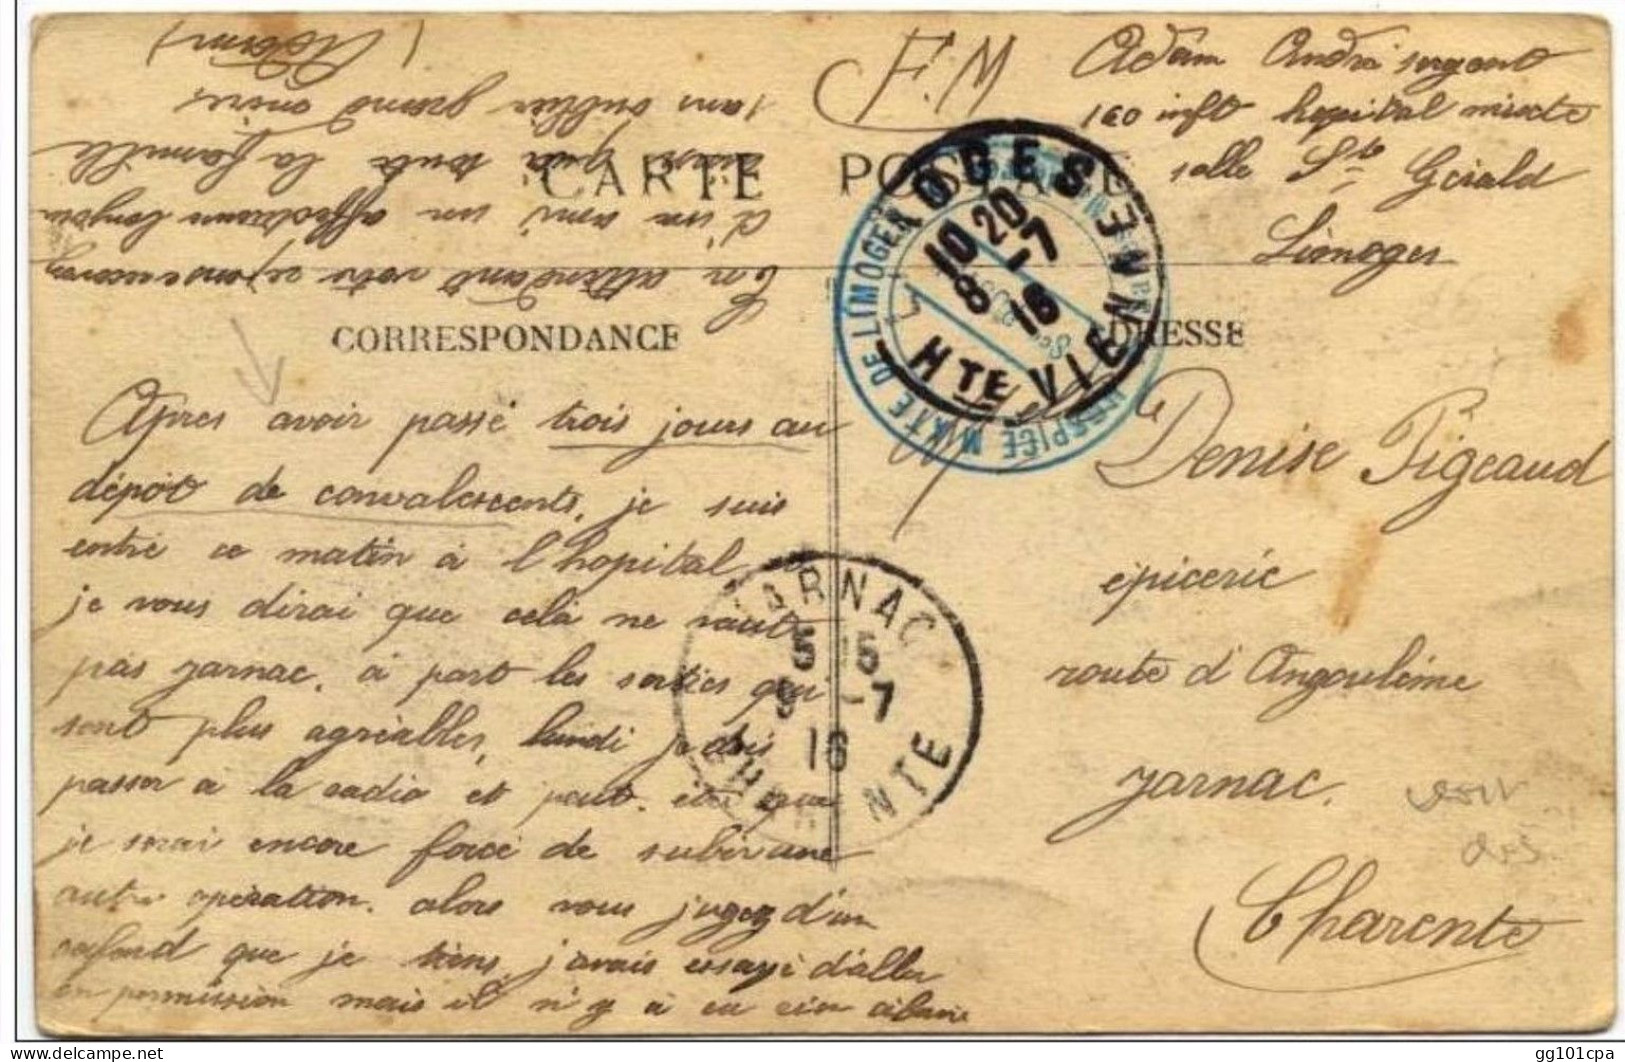 F.M
Adam André sergent
160 inft hopital mixte
salle St Gérald
Limoges
CARTE POSTALE
CORRESPONDANCE
ADRESSE
LIMOGES
10 20
8 -7
16
HTE VIENNE
HOSPICE MIXTE DE LIMOGES
Après avoir passé trois jours au
dépôt de convalescents, je suis
entré ce matin à l'hopital,
je vous dirai que celà ne vaut
pas Jarnac, à part les sorties qui
sont plus agréables, lundi je dois
passer à la radio et peut-être que
je serai encore forcé de subir une
autre opération. alors vous jugez d'un
cafard que je tiens, j'avais essayé d'aller
en permission mais il n'y a eu rien à faire
En attendant votre
d'un ami un affectueux bonjour
ainsi que toute la famille
sans oublier grand mère
(Adam)
Melle Denise Pigeaud
épicerie
route d'Angoulème
Jarnac.
Charente
JARNAC
5 15
9 -7
16
CHARENTE
gg101cpa